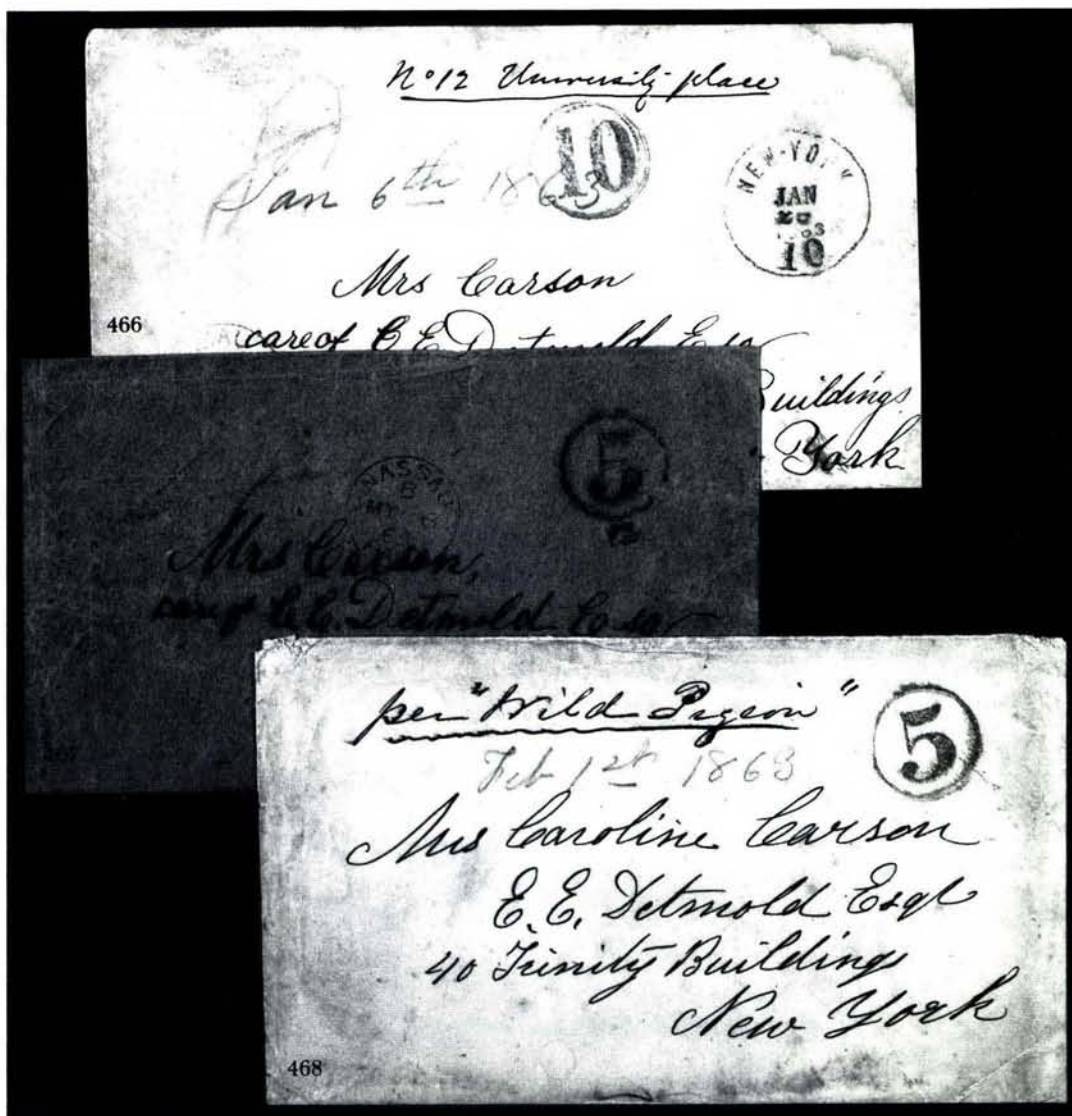 No 12 University place
10
Jan 6th 1863
NEW-YORK
JAN
63
10
Mrs Carson
care of C E Detmold Esqr
Buildings
York
466
5
NASSAU
B
MY
Mrs Carson,
care of C.E. Detmold Esqr
per "Wild Pigeon"
5
Feb 1st 1863
Mrs Caroline Carson
E. E. Detmold Esqr
40 Trinity Buildings
New York
468